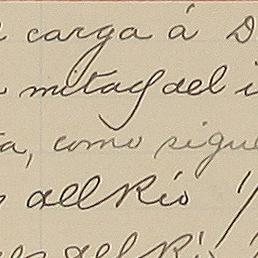 carga á D
mitad del i
como sigue
del Rio
del Rio